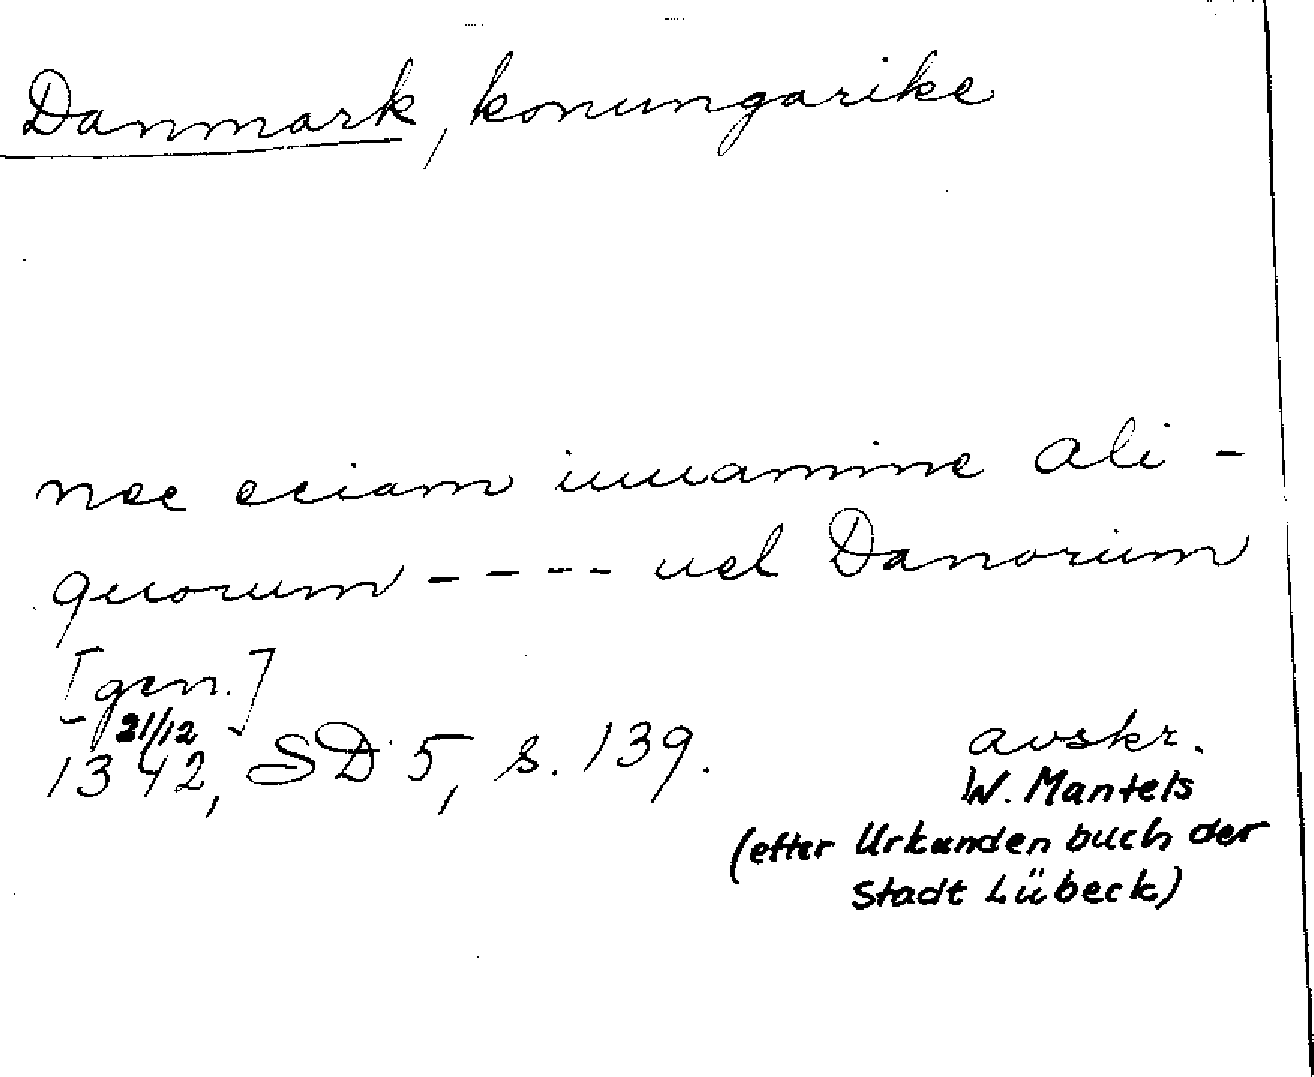 Danmark, konungarike
nec eciam iuuamine ali-
quorum ---- uel Danorum
[gen.]
21/12
1342, SD 5, s. 139.
avskr.
W. Mantels
(efter Urkunden buch der
Stadt Lübeck)